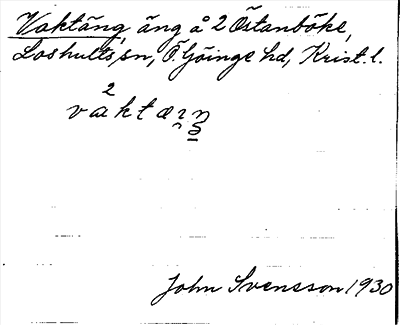 Vaktäng, äng å 2 Östanböke,
Loshults sn, Ö. Göinge hd, Krist. l.
2
John Svensson 1930